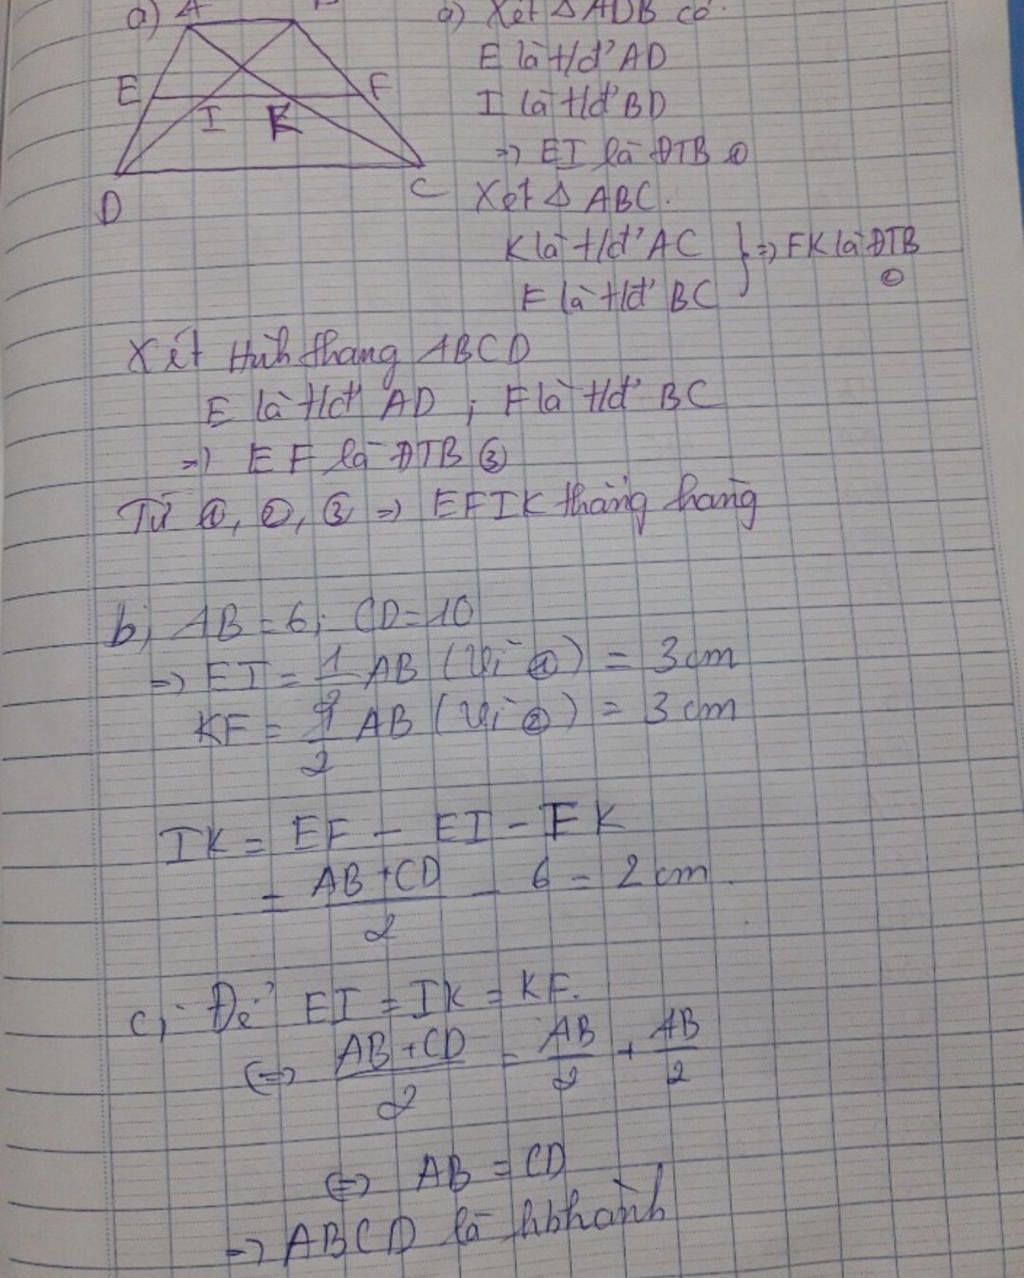 a) A B
E F
I K
D C
a) Xét Δ ADB có
E là t/đ' AD
I là t/đ' BD
=> EI là ĐTB ①
Xét Δ ABC.
K là t/đ' AC
F là t/đ' BC
} => FK là ĐTB ②
Xét Hình thang ABCD
E là t/đ' AD ; F là t/đ' BC
=> EF là ĐTB ③
Từ ①, ②, ③ => EFIK thẳng hàng
b, AB = 6; CD = 10
=> EI = 1/2 AB (Vì ①) = 3 cm
KF = 1/2 AB (Vì ②) = 3 cm
IK = EF - EI - FK
= (AB + CD)/2 - 6 = 2 cm.
c, Để EI = IK = KF.
<=> (AB + CD)/2 = AB/2 + AB/2
<=> AB = CD
=> ABCD là hbhành